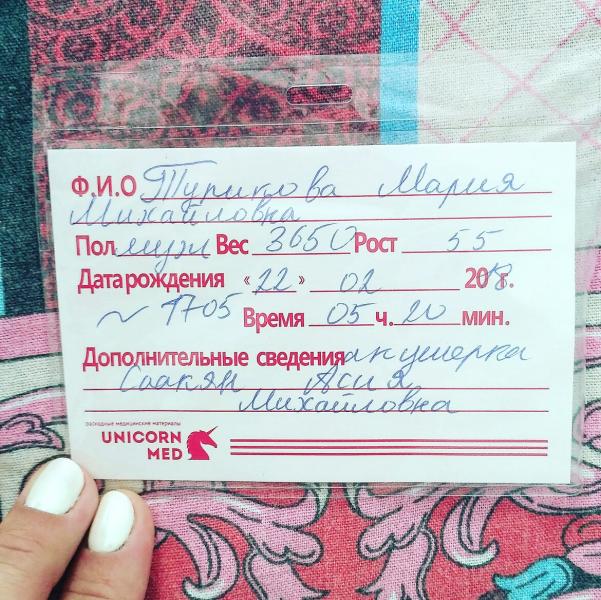 Ф.И.О Турикова Мария
Михайловна
Пол муж Вес 3650 Рост 55
Дата рождения «22» 02 2018 г.
~ 1705 Время 05 ч. 20 мин.
Дополнительные сведения акушерка
Саакян Асия
Михайловна
расходные медицинские материалы
UNICORN
MED